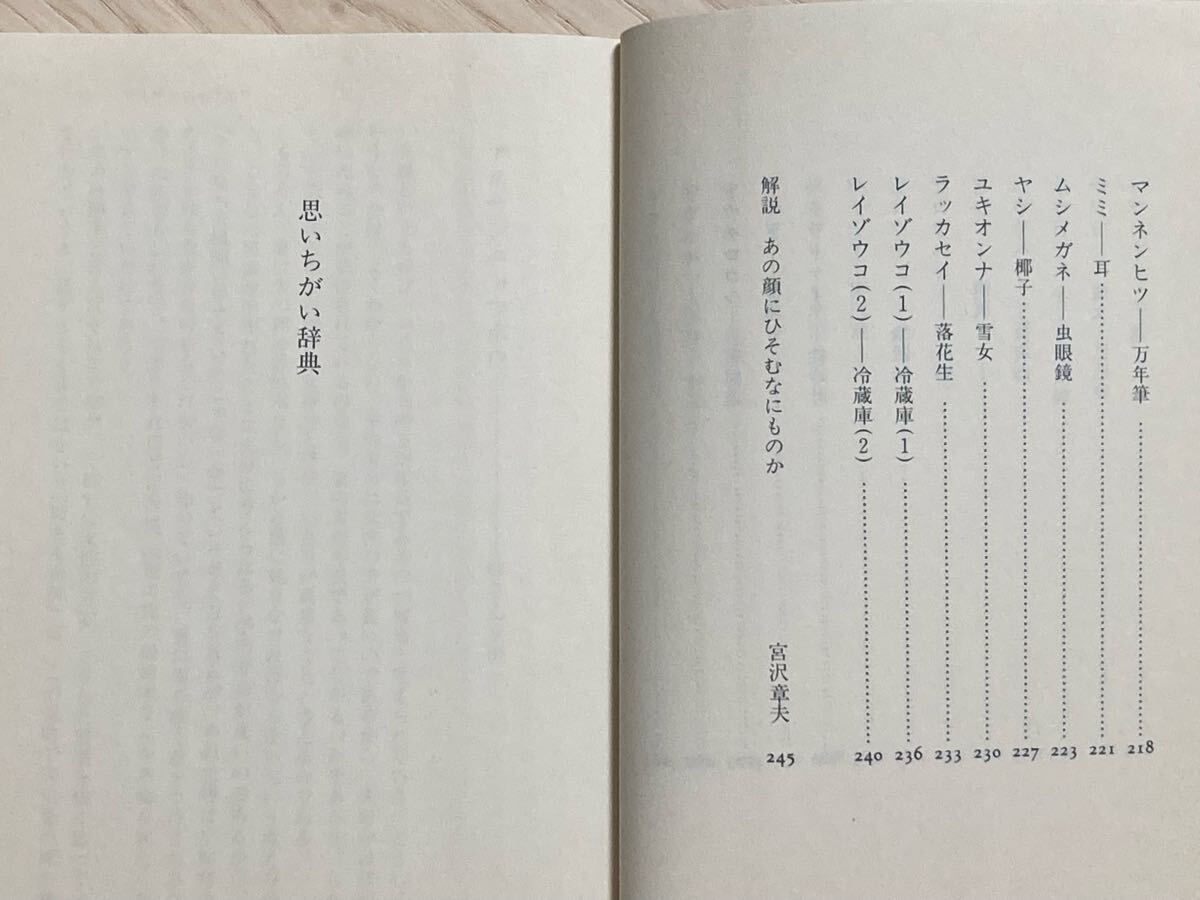 マンネンヒツ——万年筆……………218
ミミ——耳……………221
ムシメガネ——虫眼鏡……………223
ヤシ——椰子……………227
ユキオンナ——雪女……………230
ラッカセイ——落花生……………233
レイゾウコ(1)——冷蔵庫(1)……………236
レイゾウコ(2)——冷蔵庫(2)……………240
解説 あの顔にひそむなにものか 宮沢章夫 245
思いちがい辞典